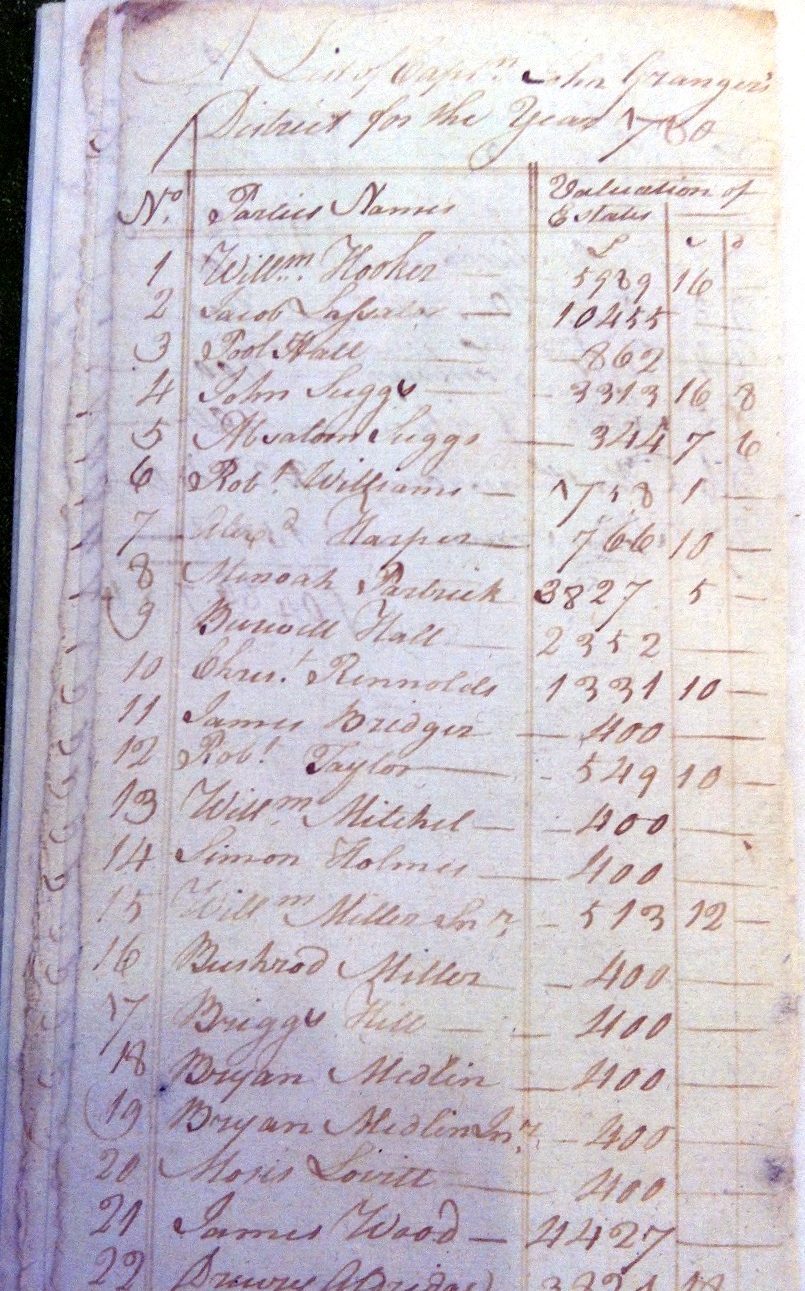 A List of Captn. John Granger's
District for the Year 1780
No. Parties Names Valuation of
Estates
£ s d
1 Willm. Hooker 5989 16
2 Jacob Lassater 10455
3 Pool Hall 862
4 John Suggs 3313 16 8
5 Absalom Suggs 344 7 6
6 Robt. Williams 1758 1
7 Harper 766 10
8 Minoah Partrick 3827 5
9 Burwell Hall 2352
10 Chrisr. Rennolds 1331 10
11 James Bridger 400
12 Robt. Taylor 549 10
13 Willm. Mitchel 400
14 Simon Holmes 400
15 Willm Miller Snr. 513 12
16 Bushrod Miller 400
17 Briggs Hill 400
18 Bryan Medlin 400
19 Bryan Medlin Jnr. 400
20 Moris Lovitt 400
21 James Wood 4427
22